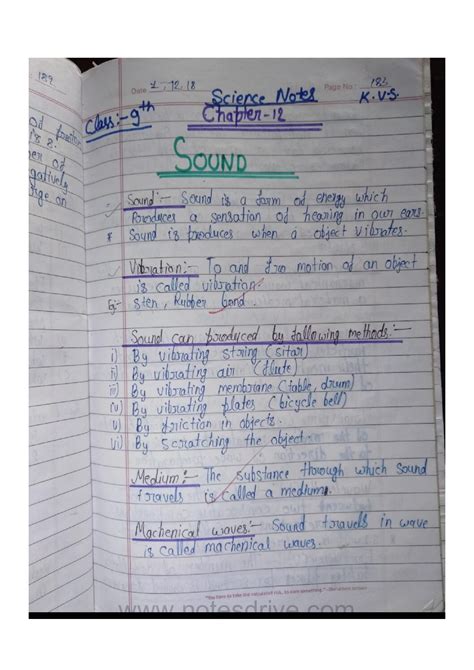 189
Date 1, 12, 18
Page No.: 183
Science Notes
K.V.S.
Class:- 9th
Chapter-12
SOUND
Sound:- Sound is a form of energy which
Produces a sensation of hearing in our ears.
* Sound is produces when a object vibrates.
Vibration:- To and fro motion of an object
is called vibration.
Eg:- sten, Rubber band.
Sound can produced by following methods:-
i) By vibrating string (sitar)
ii) By vibrating air (flute)
iii) By vibrating membrane (table, drum)
iv) By vibrating plates (bicycle bell)
v) By friction in objects.
vi) By scratching the object.
Medium:- The substance through which sound
travels is called a medium.
Machenical waves:- Sound travels in wave
is called machenical waves.
www.notesdrive.com